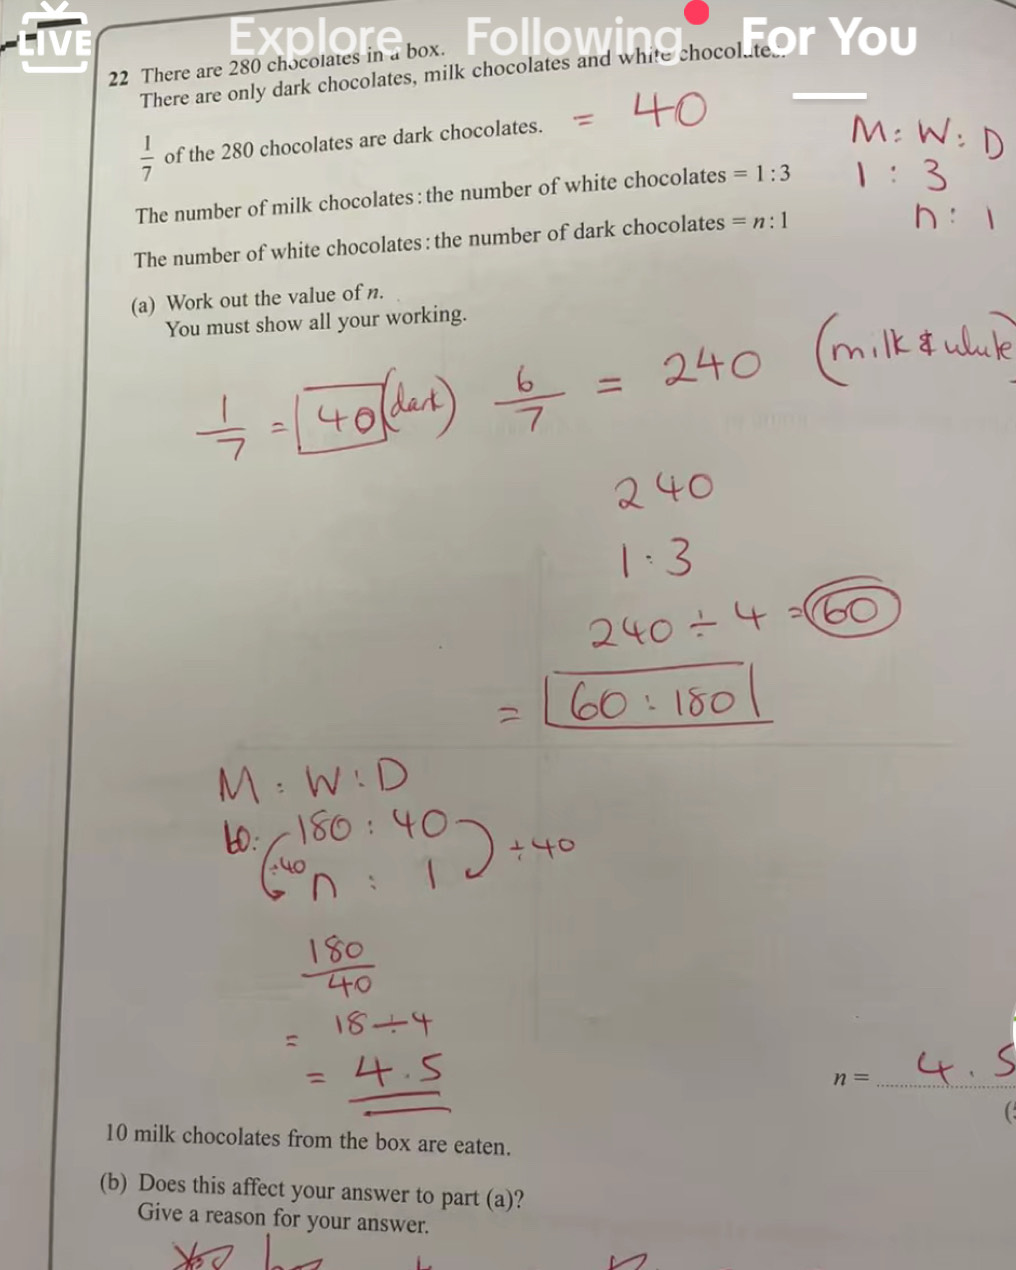 LIVE Explore Following For You
22 There are 280 chocolates in a box.
There are only dark chocolates, milk chocolates and white chocolates.
1/7 of the 280 chocolates are dark chocolates. = 40
M : W : D
The number of milk chocolates : the number of white chocolates = 1 : 3
1 : 3
The number of white chocolates : the number of dark chocolates = n : 1
n : 1
(a) Work out the value of n.
You must show all your working.
1/7 = 40 (dark) 6/7 = 240 (milk & white)
240
1 : 3
240 ÷ 4 = 60
= 60 : 180
M : W : D
60 : 180 : 40
÷40 n : 1 ÷40
180/40
= 18 ÷ 4
= 4.5
n = 4.5
10 milk chocolates from the box are eaten.
(b) Does this affect your answer to part (a)?
Give a reason for your answer.